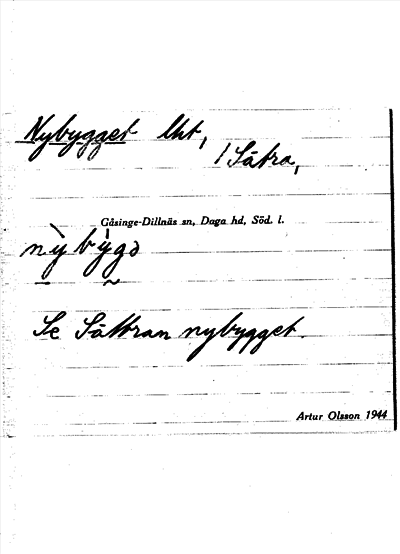 Nybygget lht,
/ Sätra,
Gåsinge-Dillnäs sn, Daga hd, Söd. l.
nỳ bỳgə
Se Sättran nybygget.
Artur Olsson 1944